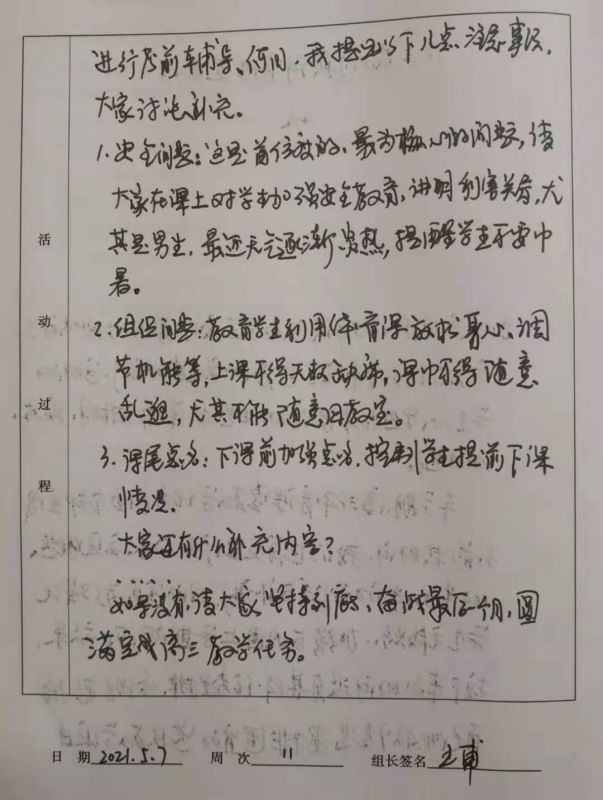 进行考前辅导。同时,我提出以下几点注意事项,
大家讨论补充。
1.安全问题:这是首位放的、最为核心的问题,请
大家在课上对学生加强安全教育,讲明利害关系,尤
其是男生,最近天气逐渐炎热,提醒学生不要中
暑。
2.组织问题:教育学生利用体育课放松身心、调
节机能等,上课不得无故缺席,课中不得随意
乱逛,尤其不能随意回教室。
3.课尾点名:下课前加强点名,控制学生提前下课
情况。
大家还有什么补充内容?
……
如果没有,请大家坚持到底,奋战最后一个月,圆
满完成高三教学任务。
活
动
过
程
日 期 2021.5.7 周 次 11 组长签名 王甫